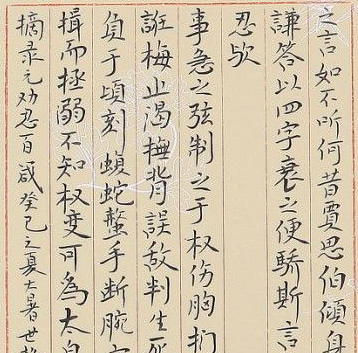 之言如不听何昔贾思伯倾身
谦答以四字衰之便骄斯言
忍欤
事急之弦制之于权伤胸扪
诳梅止渴抚背误敌判生死
负于顷刻蝮蛇螫手断腕
揖而拯溺不知权变可为太息
摘录元劝忍百箴癸巳之夏大暑世